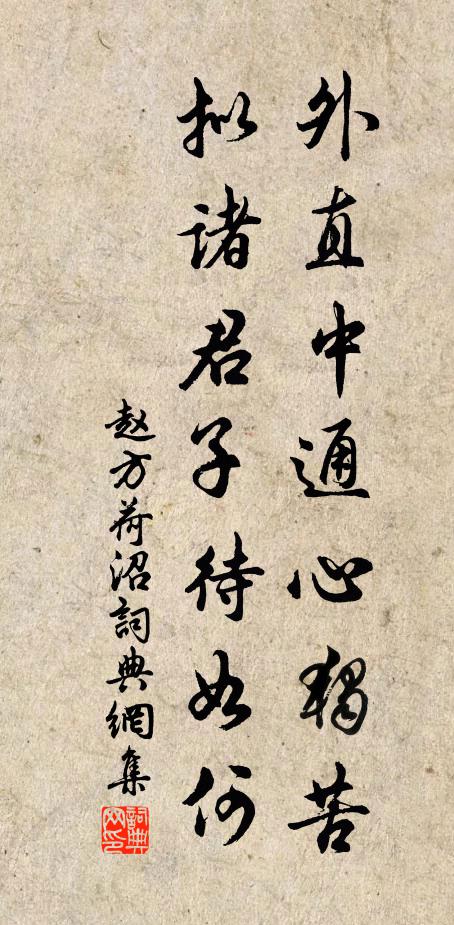 外直中通心独苦
拟诸君子待如何
赵方荷沼詞典網集
詞典網印